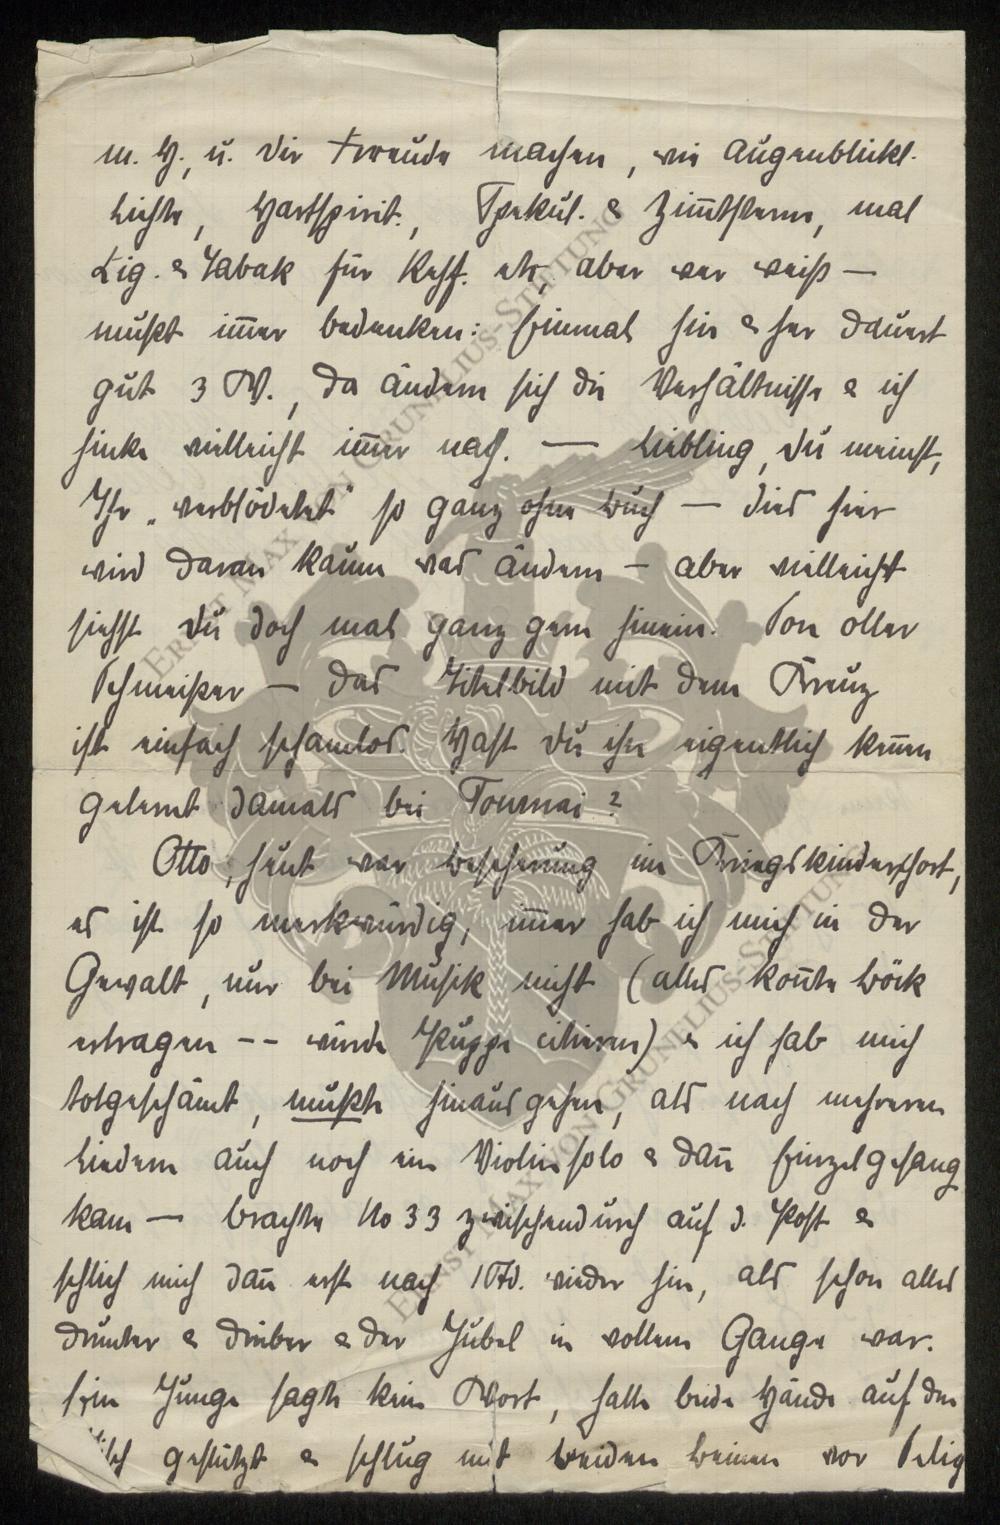 m. H., u. dir Freude machen, wie augenblickl.
Lichte, Hartspirit., Spekul. & Zimtsterne, mal
Zig. & Tabak für Kasf. etc, aber wer weiß —
mußt immer bedenken: Einmal hin & her dauert
gut 3 W., da ändern sich die Verhältnisse & ich
hinke vielleicht immer nach. — Liebling, du meinst,
Ihr „verblödetet" so ganz ohne Buch — dies hier
wird daran kaum was ändern — aber vielleicht
siehst du doch mal ganz gern hinein. Son oller
Schmeißer — das Titelbild mit dem Kreuz
ist einfach schamlos. Hast du ihn eigentlich kennen
gelernt damals bei Tournai?
Otto, heut war Bescherung im Kriegskinderhort,
es ist so merkwürdig, immer hab ich mich in der
Gewalt, nur bei Musik nicht (alles konnte Böck
ertragen -- würde Puppe citieren) & ich hab mich
totgeschämt, mußte hinausgehen, als nach mehreren
Liedern auch noch ein Violinsolo & dann Einzelgesang
kam — brachte No 33 zwischendurch auf d. Post &
schlich mich dann erst nach 1 Std. wieder hin, als schon alles
drunter & drüber & der Jubel in vollem Gange war.
Ein Junge sagte kein Wort, hatte beide Hände auf den
Tisch gestützt & schlug mit beiden Beinen vor Selig
ERNST MAX VON GRUNELIUS-STIFTUNG
ERNST MAX VON GRUNELIUS-STIFTUNG